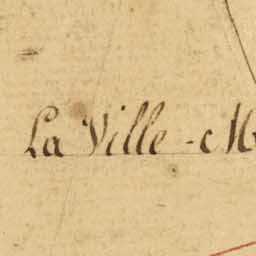 La Ville - M